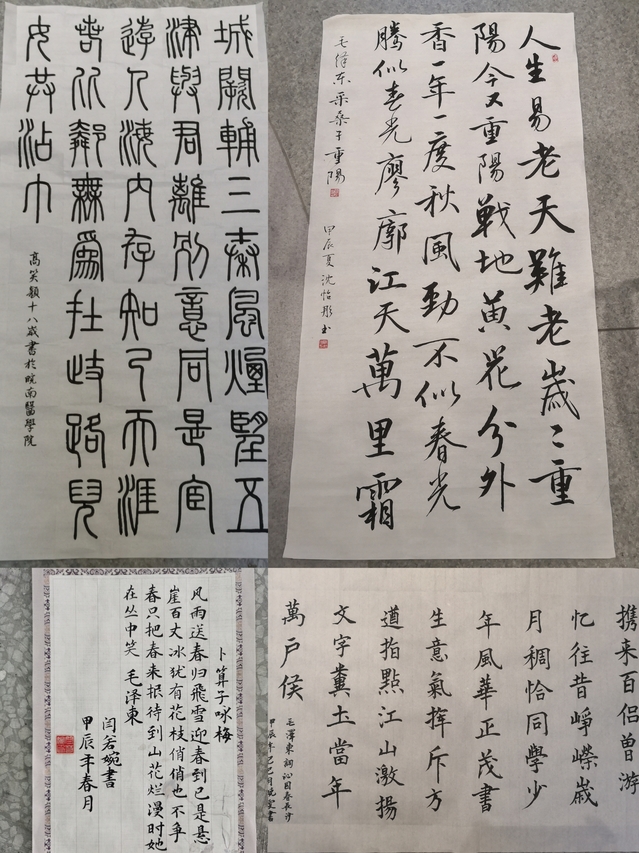 城闕輔三秦風煙望五
津與君離別意同是宦
遊人海内存知己天涯
若比鄰無爲在歧路兒
女共沾巾
高笑穎十八歲書於皖南醫學院
人生易老天難老歲々重
陽今又重陽戰地黄花分外
香一年一度秋風勁不似春光
勝似春光廖廓江天萬里霜
毛泽东采桑子重陽
甲辰夏沈怡彤书
卜算子咏梅
风雨送春归飛雪迎春到已是悬
崖百丈冰犹有花枝俏俏也不争
春只把春来报待到山花烂漫时她
在丛中笑 毛泽東
闫若婉書
甲辰年春月
携来百侣曾游
忆往昔崢嶸歲
月稠恰同學少
年風華正茂書
生意氣揮斥方
道指點江山激揚
文字糞土當年
萬戶侯
毛澤東詞沁园春長沙
甲辰年